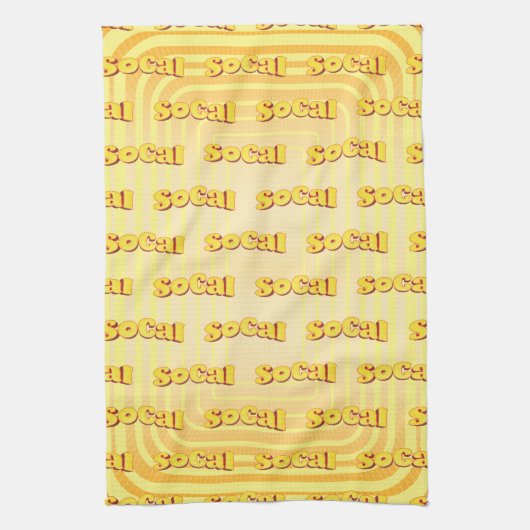 SoCal SoCal SoCal S
al SoCal SoCal SoCal
SoCal SoCal SoCal S
al SoCal SoCal SoCal
SoCal SoCal SoCal S
al SoCal SoCal SoCal
SoCal SoCal SoCal S
al SoCal SoCal SoCal
SoCal SoCal SoCal S
al SoCal SoCal SoCal
SoCal SoCal SoCal S